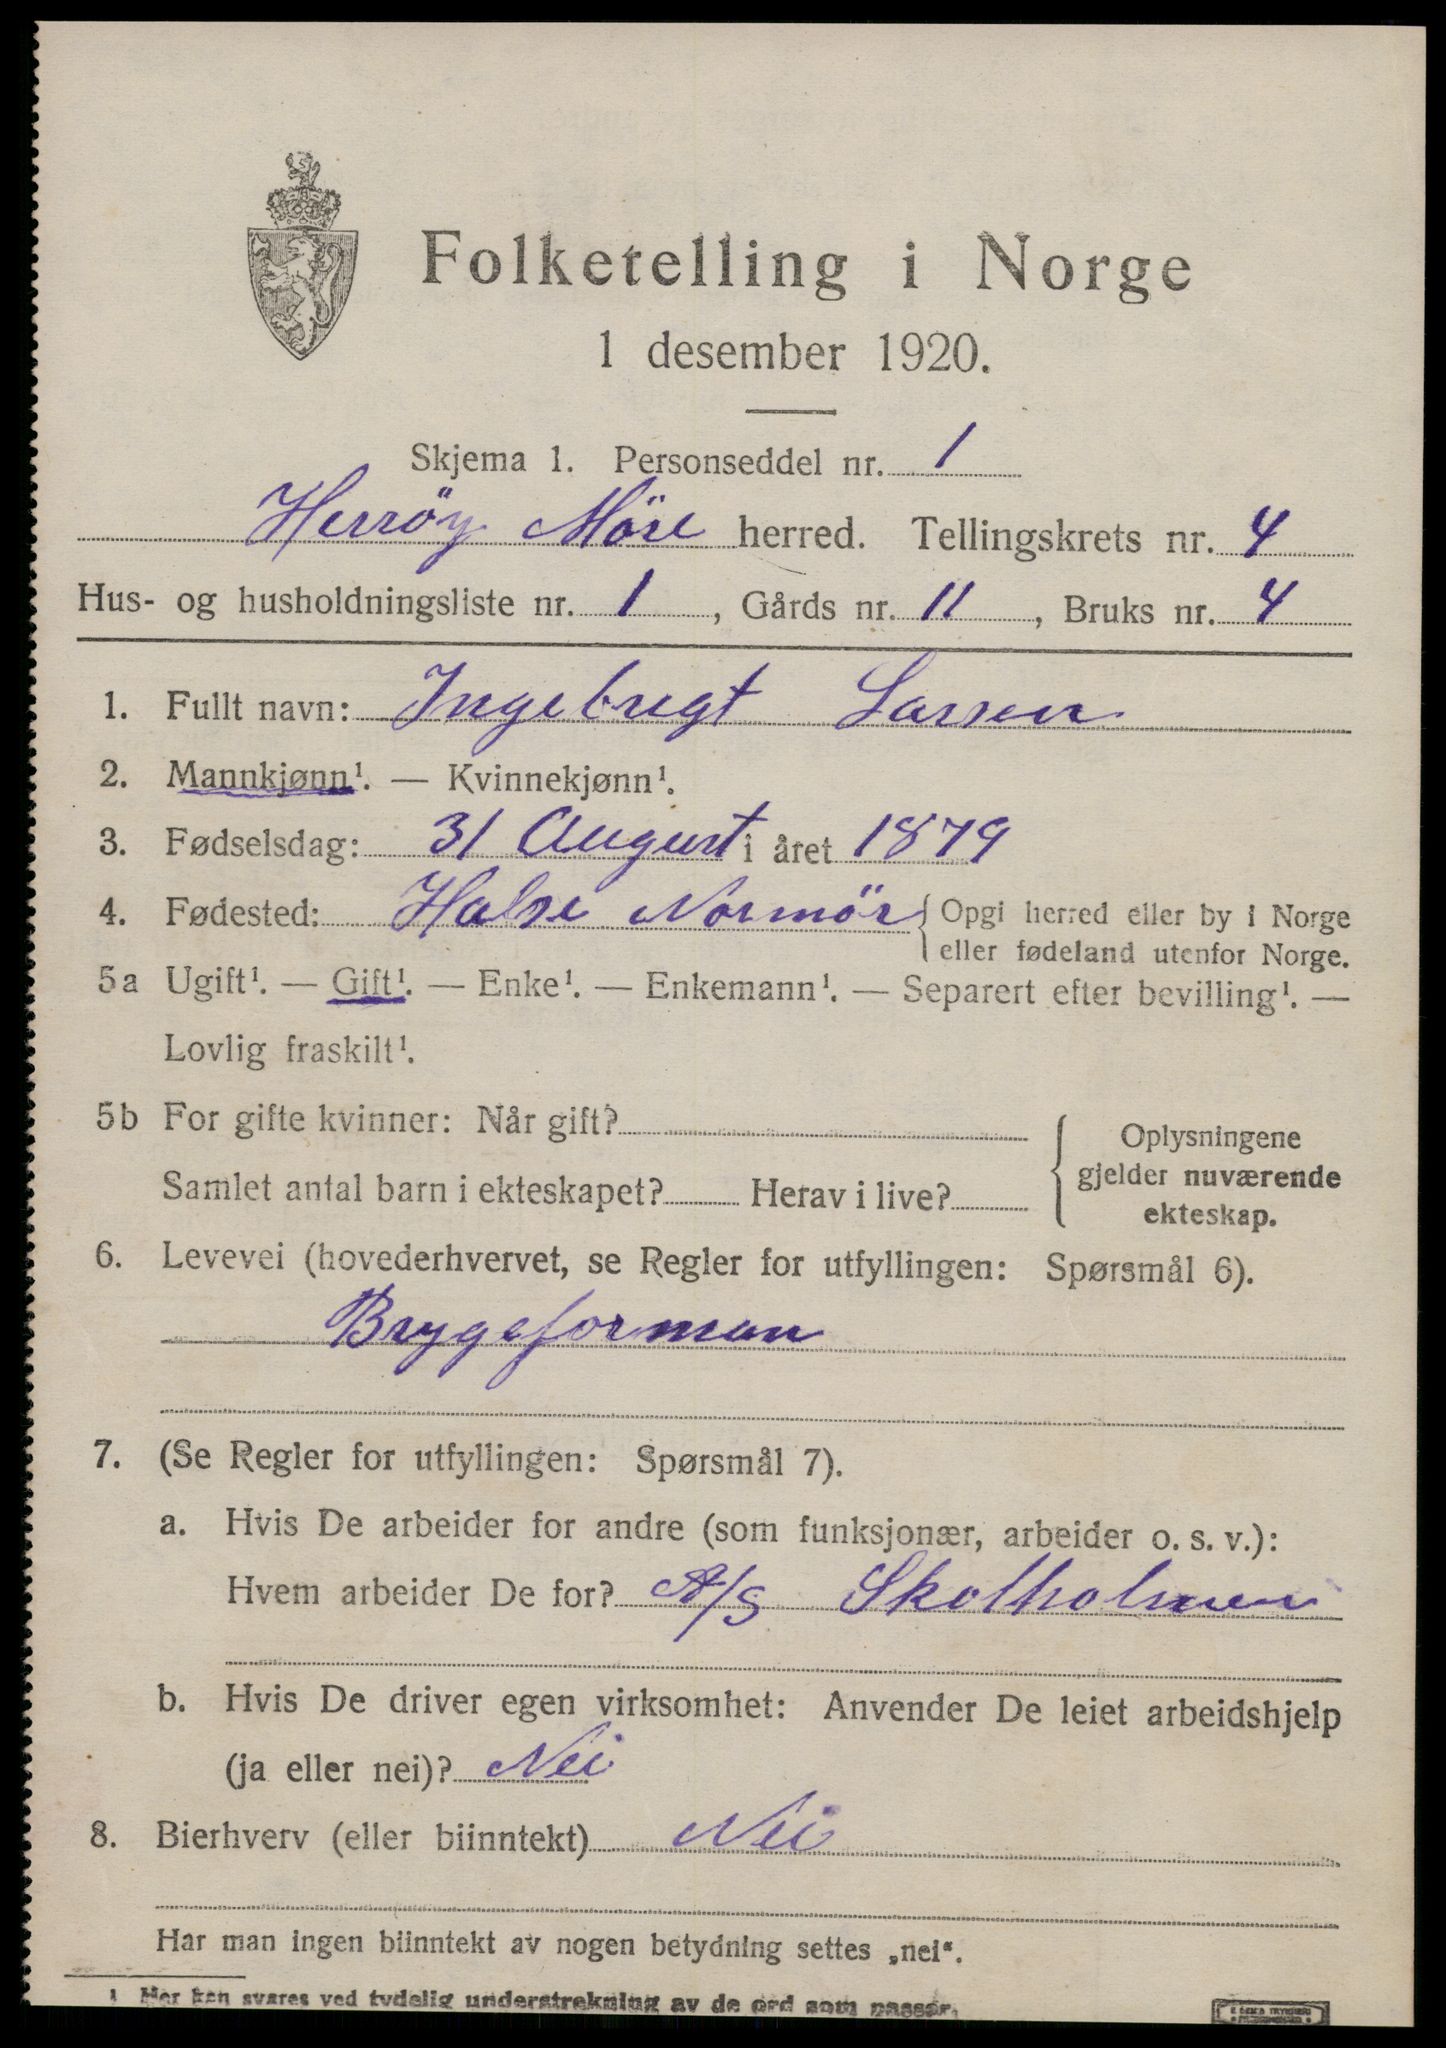 Folketelling i Norge
1 desember 1920.
Skjema 1. Personseddel nr. 1
Herröy Möre herred. Tellingskrets nr. 4
Hus- og husholdningsliste nr. 1, Gårds nr. 11, Bruks nr. 4
1. Fullt navn: Ingebrigt Larsen
2. Mannkjønn¹. — Kvinnekjønn¹.
3. Fødselsdag: 31 August i året 1879
4. Fødested: Halse Normör { Opgi herred eller by i Norge
eller fødeland utenfor Norge.
5a Ugift¹. — Gift¹. — Enke¹. — Enkemann¹. — Separert efter bevilling¹. —
Lovlig fraskilt¹.
5b For gifte kvinner: Når gift?
Samlet antal barn i ekteskapet? Herav i live?
Oplysningene
gjelder nuværende
ekteskap.
6. Levevei (hovederhvervet, se Regler for utfyllingen: Spørsmål 6).
Brygeforman
7. (Se Regler for utfyllingen: Spørsmål 7).
a. Hvis De arbeider for andre (som funksjonær, arbeider o. s. v.):
Hvem arbeider De for? A/S Skotholmen
b. Hvis De driver egen virksomhet: Anvender De leiet arbeidshjelp
(ja eller nei)? Nei
8. Bierhverv (eller biinntekt) Nei
Har man ingen biinntekt av nogen betydning settes „nei“.
¹ Her kan svares ved tydelig understrekning av de ord som passer.